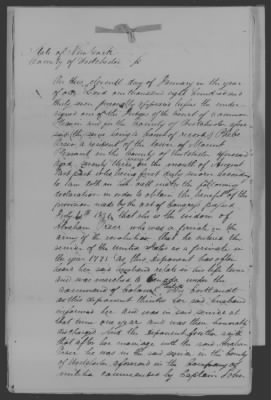 State of New York
County of Westchester ss
On this eleventh day of January in the year
of our Lord one thousand eight hundred and
thirty seven personally appeared before the under
signed one of the Judges of the Court of Common
Pleas in and for the County of Westchester afore
said (the same being a Court of record) Phebe
a resident of the Town of Mount
Pleasant in the County of Westchester aforesaid
aged seventy three in the month of August
last past who being first duly sworn according
to law doth on her oath make the following
declaration in order to obtain the benefit of the
provision made by the act of Congress passed
July 4th 1836 that she is the widow of
Abraham who was a private in the
army of the revolution that he entered the
service of the United States as a private in
the year 1775 as this deponent has often
heard her said husband relate in his life time
and was marched to Canada under the
command of Cortlandt
as this deponent thinks her said husband
informed her and was in said service at
that time one year and was then honorably
discharged And the deponent further saith
that after her marriage with the said Abraham
he was in the said service in the County
of Westchester aforesaid in the Company of
militia commanded by Captain John